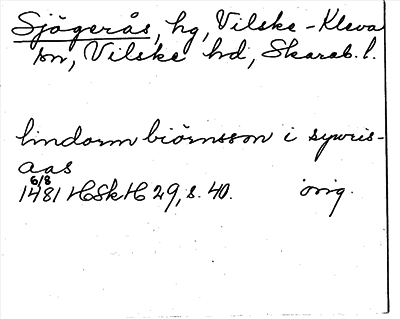 Sjögerås, hg, Vilske-Kleva
sn, Vilske hd, Skarab. l.
lindorm biörnsson i sywris-
aas
6/8
1481 HSkH 29, s. 40. orig.